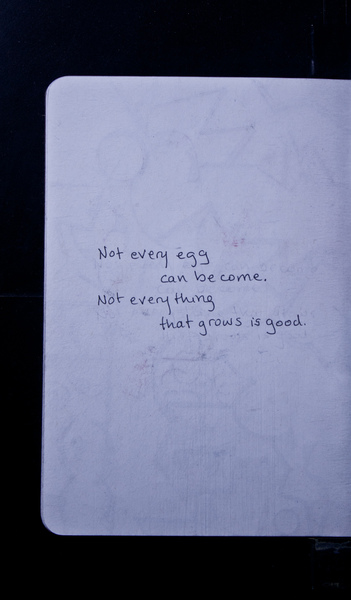 Not every egg
can become.
Not everything
that grows is good.